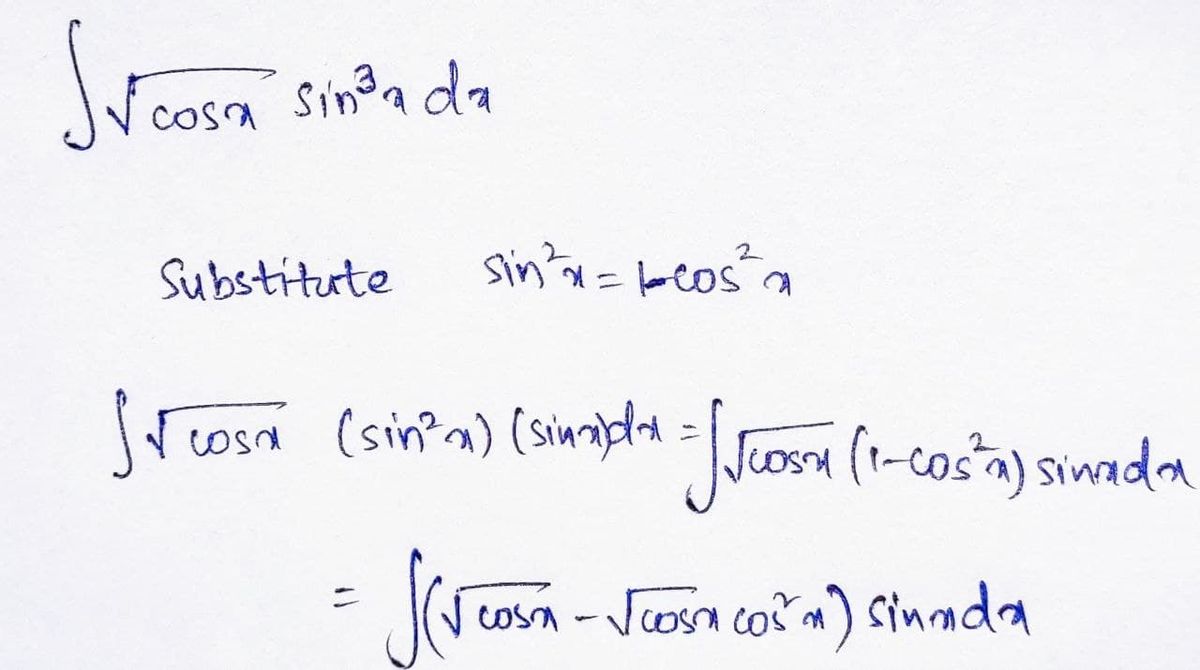 ∫√cosx sin³x dx
Substitute sin²x = 1-cos²x
∫√cosx (sin²x) (sinx)dx = ∫√cosx (1-cos²x) sinxdx
= ∫(√cosx - √cosx cos²x) sinxdx